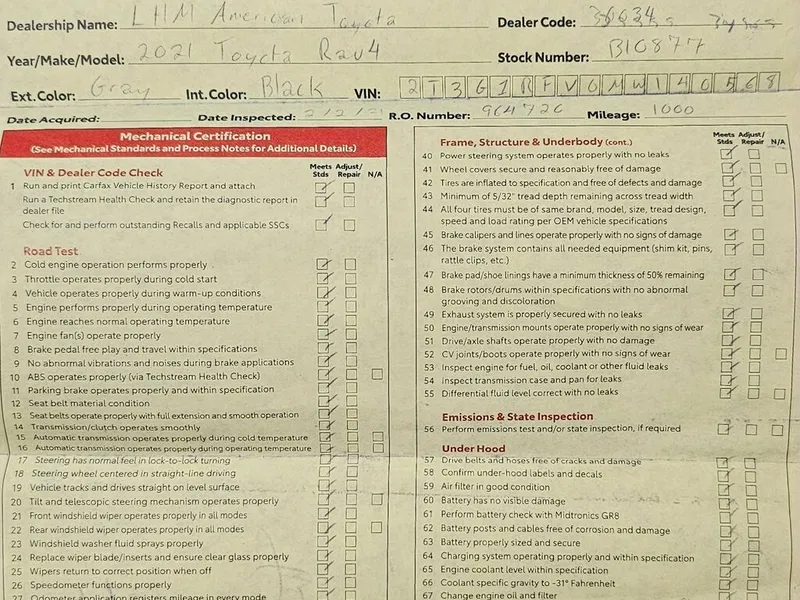 Dealership Name: LHM American Toyota Dealer Code:
Year/Make/Model: 2021 Toyota Rav4 Stock Number: B10877
Ext.Color: Gray Int.Color: Black VIN: 2T3G1RFV0MW140568
Date Acquired: Date Inspected: R.O. Number: 964720 Mileage: 1000
Mechanical Certification
(See Mechanical Standards and Process Notes for Additional Details)
VIN & Dealer Code Check Meets Stds Adjust/Repair N/A
1 Run and print Carfax Vehicle History Report and attach
Run a Techstream Health Check and retain the diagnostic report in
dealer file
Check for and perform outstanding Recalls and applicable SSCs
Road Test
2 Cold engine operation performs properly
3 Throttle operates properly during cold start
4 Vehicle operates properly during warm-up conditions
5 Engine performs properly during operating temperature
6 Engine reaches normal operating temperature
7 Engine fan(s) operate properly
8 Brake pedal free play and travel within specifications
9 No abnormal vibrations and noises during brake applications
10 ABS operates properly (via Techstream Health Check)
11 Parking brake operates properly and within specification
12 Seat belt material condition
13 Seat belts operate properly with full extension and smooth operation
14 Transmission/clutch operates smoothly
15 Automatic transmission operates properly during cold temperature
16 Automatic transmission operates properly during operating temperature
17 Steering has normal feel in lock-to-lock turning
18 Steering wheel centered in straight-line driving
19 Vehicle tracks and drives straight on level surface
20 Tilt and telescopic steering mechanism operates properly
21 Front windshield wiper operates properly in all modes
22 Rear windshield wiper operates properly in all modes
23 Windshield washer fluid sprays properly
24 Replace wiper blade/inserts and ensure clear glass properly
25 Wipers return to correct position when off
26 Speedometer functions properly
27 Odometer application registers mileage in every mode
Frame, Structure & Underbody (cont.) Meets Stds Adjust/Repair N/A
40 Power steering system operates properly with no leaks
41 Wheel covers secure and reasonably free of damage
42 Tires are inflated to specification and free of defects and damage
43 Minimum of 5/32" tread depth remaining across tread width
44 All four tires must be of same brand, model, size, tread design,
speed and load rating per OEM vehicle specifications
45 Brake calipers and lines operate properly with no signs of damage
46 The brake system contains all needed equipment (shim kit, pins,
rattle clips, etc.)
47 Brake pad/shoe linings have a minimum thickness of 50% remaining
48 Brake rotors/drums within specifications with no abnormal
grooving and discoloration
49 Exhaust system is properly secured with no leaks
50 Engine/transmission mounts operate properly with no signs of wear
51 Drive/axle shafts operate properly with no damage
52 CV joints/boots operate properly with no signs of wear
53 Inspect engine for fuel, oil, coolant or other fluid leaks
54 Inspect transmission case and pan for leaks
55 Differential fluid level correct with no leaks
Emissions & State Inspection
56 Perform emissions test and/or state inspection, if required
Under Hood
57 Drive belts and hoses free of cracks and damage
58 Confirm under-hood labels and decals
59 Air filter in good condition
60 Battery has no visible damage
61 Perform battery check with Midtronics GR8
62 Battery posts and cables free of corrosion and damage
63 Battery properly sized and secure
64 Charging system operating properly and within specification
65 Engine coolant level within specification
66 Coolant specific gravity to -31° Fahrenheit
67 Change engine oil and filter